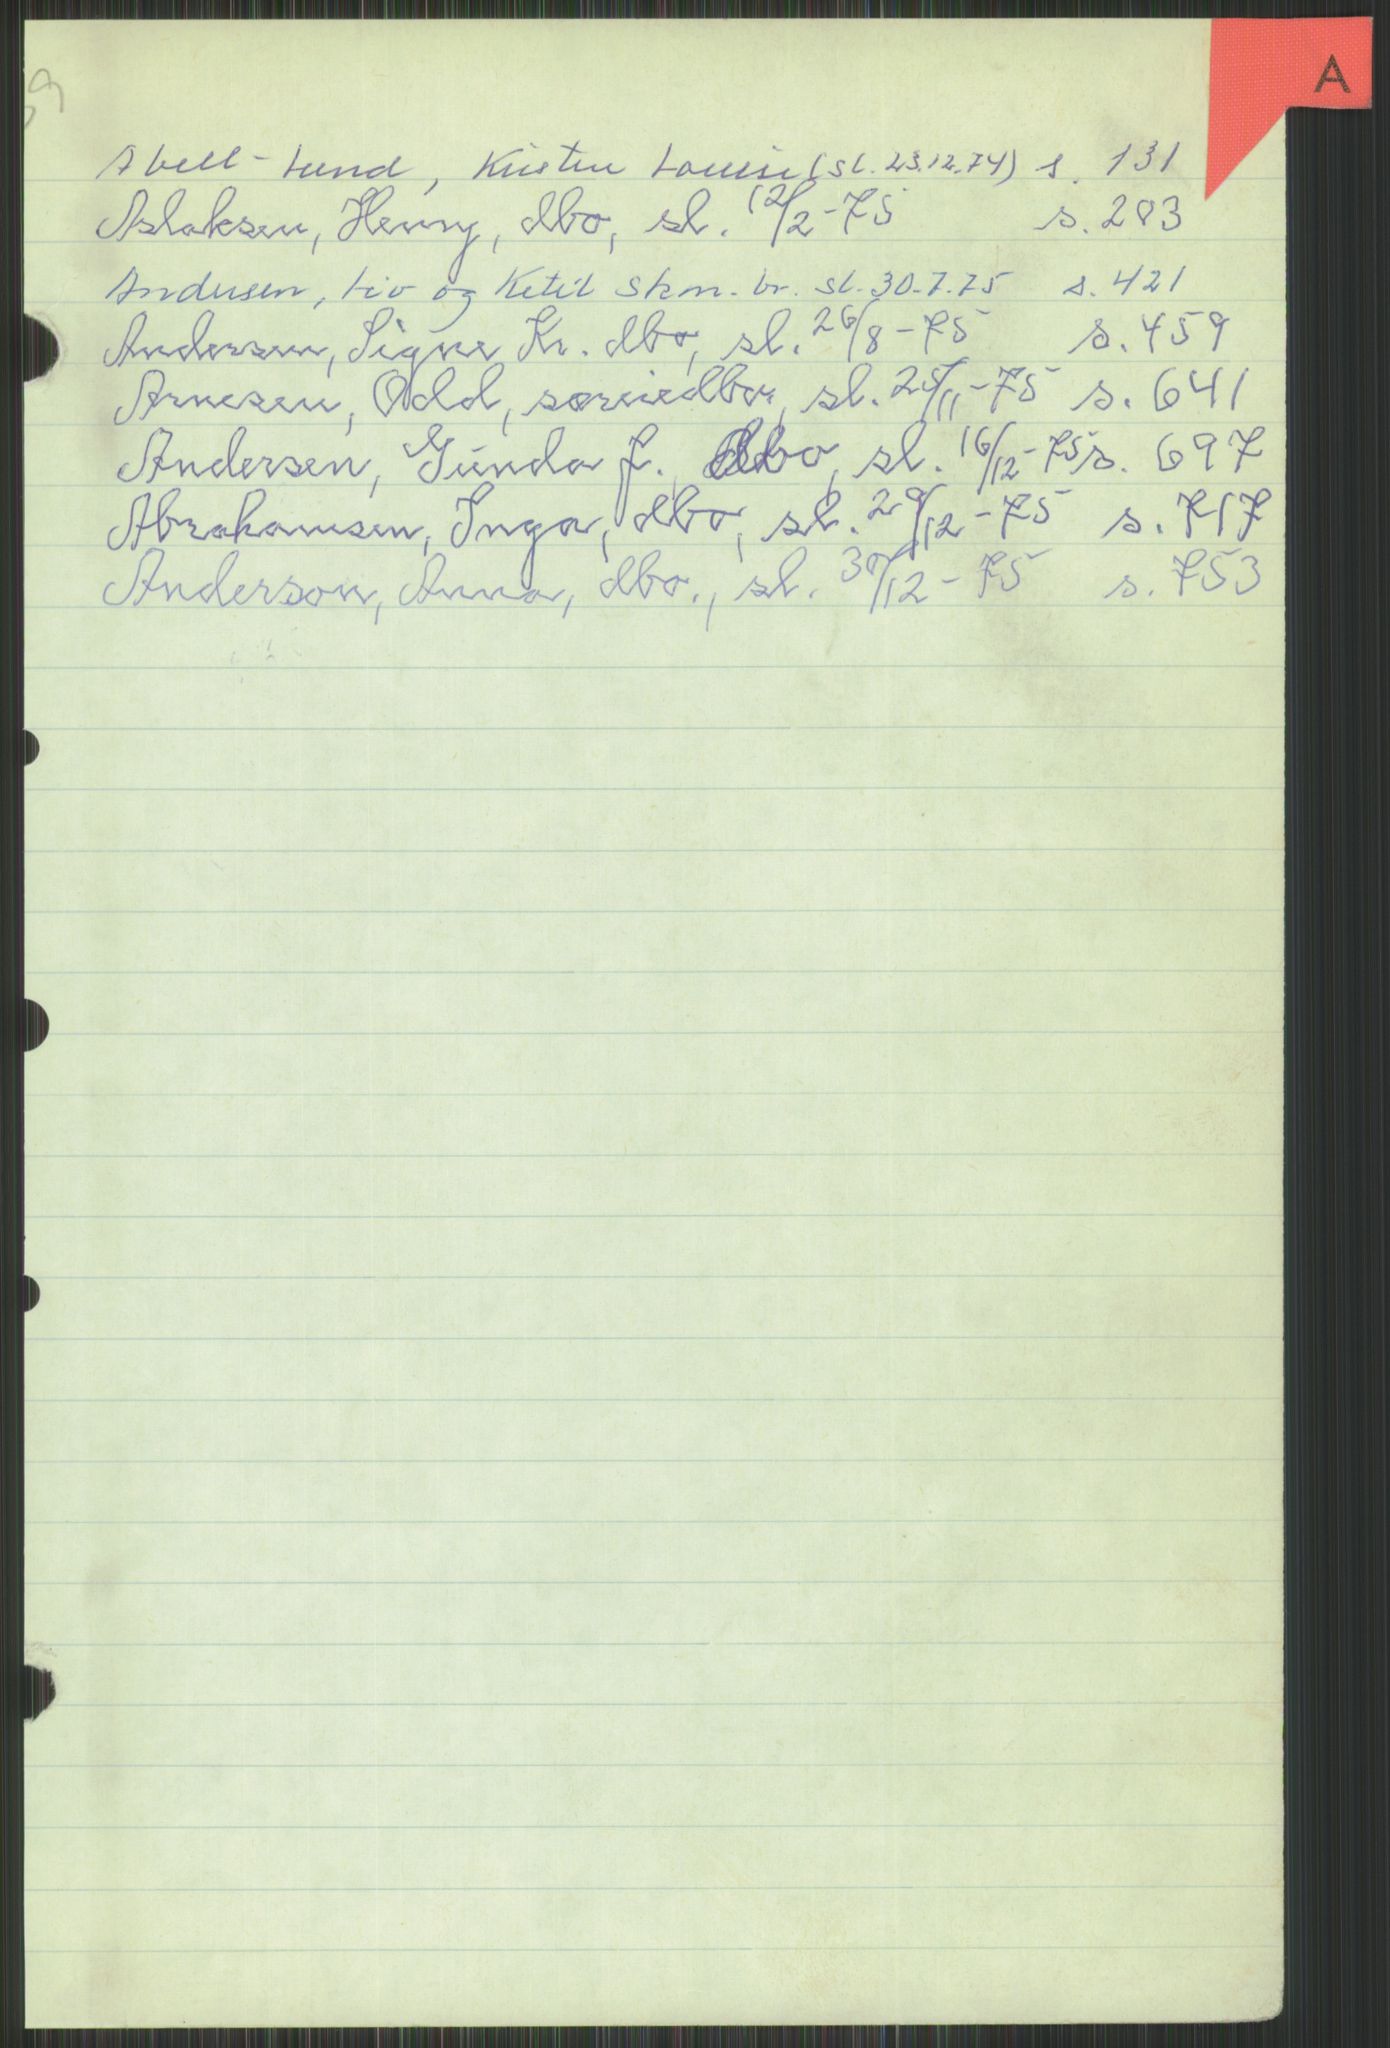 A
Abell-Lund, Kirsten Louise (sl. 23.12.74) s. 131
Aslaksen, Henny, dbo, sl. 12/2-75 s. 283
Andersen, Liv og Ketil skm. br. sl. 30.7.75 s. 421
Andersen, Signe Kr. dbo, sl. 26/8-75 s. 459
Arnesen, Odd, særeiedbo, sl. 25/11-75 s. 641
Andersen, Gunda J. dbo, sl. 16/12-75 s. 697
Abrahamsen, Inga, dbo, sl. 29/12-75 s. 717
Anderson, Anna, dbo., sl. 30/12-75 s. 753